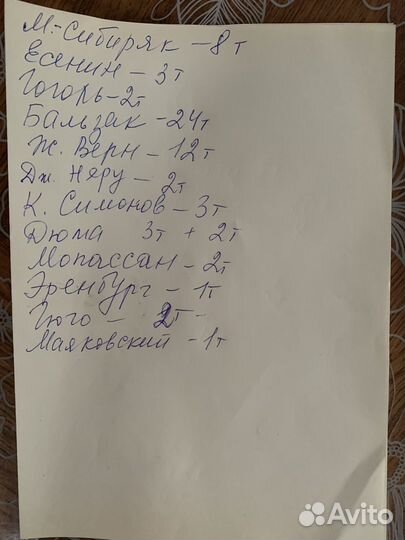 М.-Сибиряк - 8т
Есенин - 3т
Гогорь - 2т
Бальзак - 24т
Ж. Верн - 12т
Дж. Неру - 2т
К. Симонов - 3т
Дюма 3т + 2т
Мопассан - 2т
Эренбург - 1т
Гюго - 2т -
Маяковский - 1т
Avito